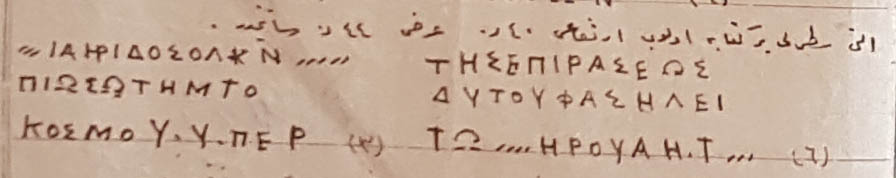 التى سطرلى بر كتابه اولوب ارتفاعى ٤٠ر٠ عرض ٤٤ر٠ سانتيمتره
〃ΙΑΗΡΙΔΟΣΟΛΚΝ〃〃〃 ΤΗΣΕΠΙΡΑΣΕΩΣ
ΠΙΩΣΩΤΗΜΤΟ ΔΥΤΟΥΦΑΣΗΛΕΙ
ΚΟΣΜΟΥ.Υ.ΠΕΡ (٣) ΤΩ....ΗΡΟΥΑΗ.Τ... (٦)